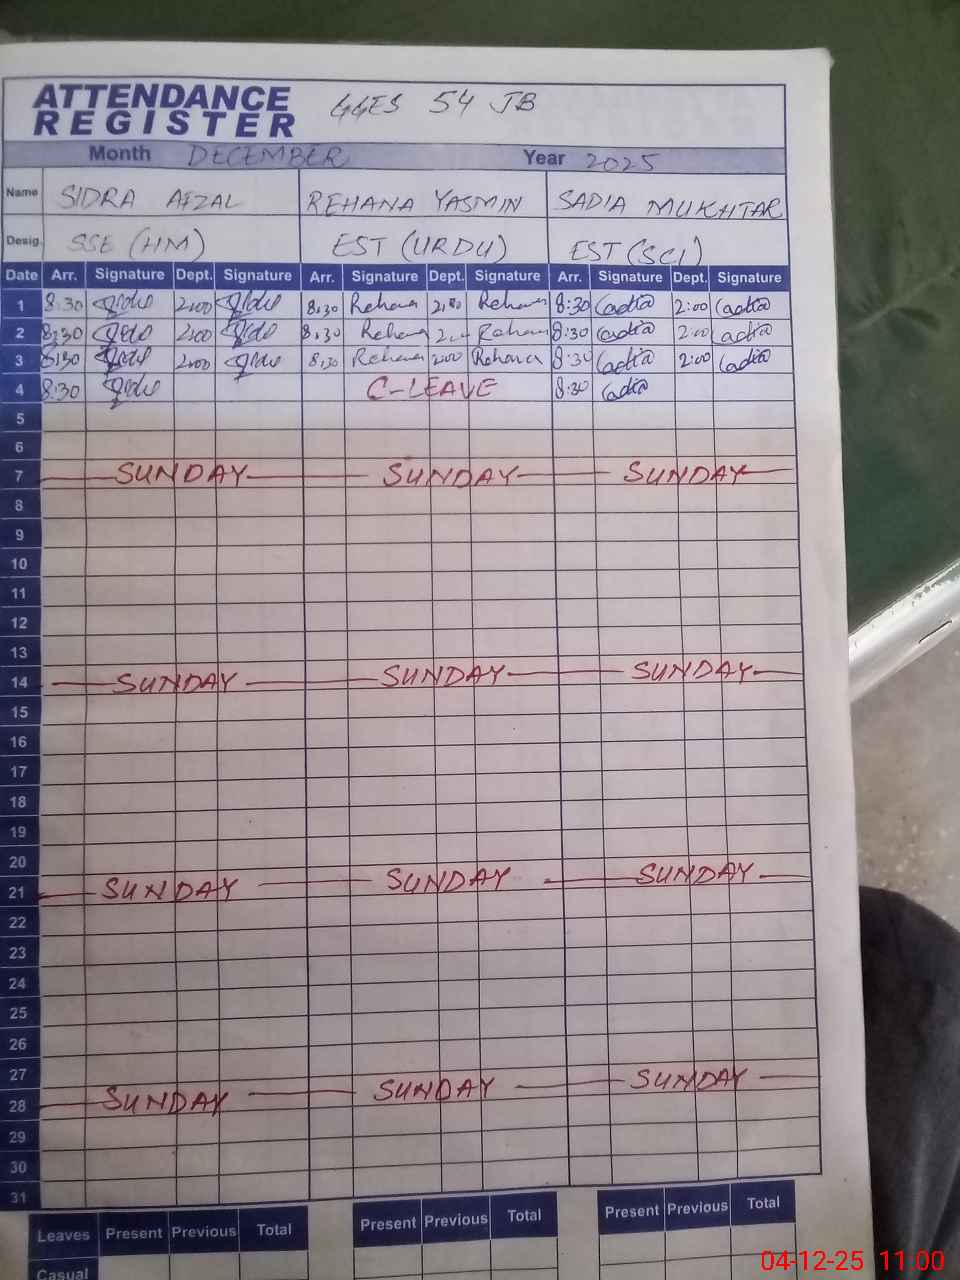 ATTENDANCE REGISTER GGES 54 JB
Month DECEMBER Year 2025
Name SIDRA AFZAL REHANA YASMIN SADIA MUKHTAR
Desig. SSE (HM) EST (URDU) EST (SCI)
Date Arr. Signature Dept. Signature Arr. Signature Dept. Signature Arr. Signature Dept. Signature
1 8:30 2:00 8:30 Rehana 2:00 Rehana 8:30 Sadia 2:00 Sadia
2 8:30 2:00 8:30 Rehana Rehana 8:30 Sadia 2:00 Sadia
3 8:30 2:00 8:30 Rehana 2:00 Rehana 8:30 Sadia 2:00 Sadia
4 8:30 C-LEAVE 8:30 Sadia
5
6
7 SUNDAY SUNDAY SUNDAY
8
9
10
11
12
13
14 SUNDAY SUNDAY SUNDAY
15
16
17
18
19
20
21 SUNDAY SUNDAY SUNDAY
22
23
24
25
26
27
28 SUNDAY SUNDAY SUNDAY
29
30
31
Leaves Present Previous Total Present Previous Total Present Previous Total
Casual
04-12-25 11:00